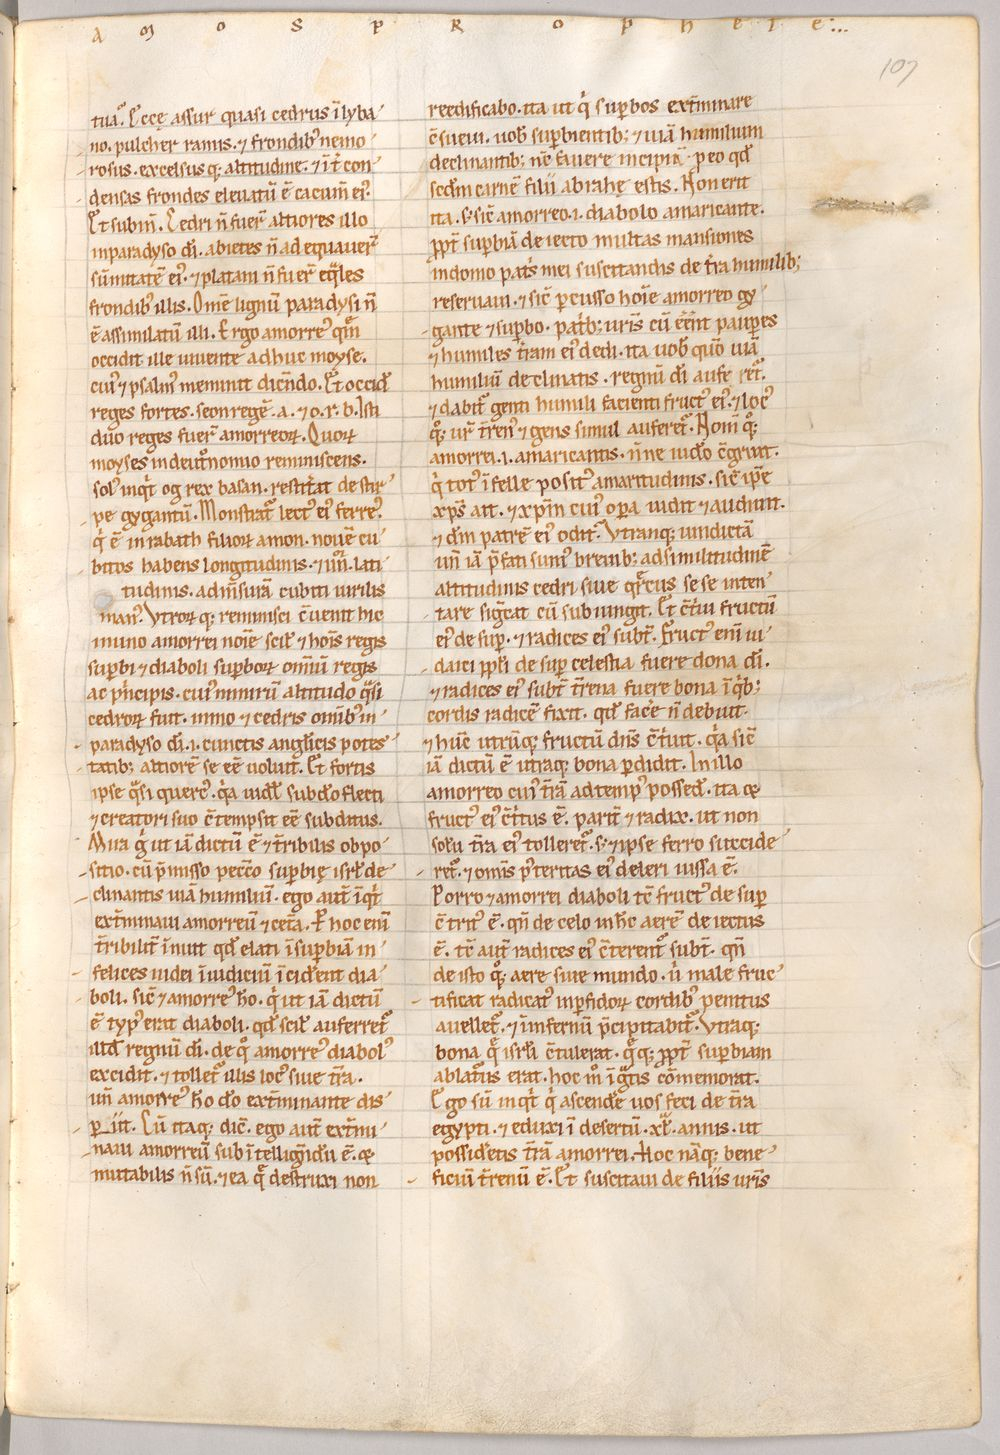 A M O S P R O P H E T E :...
107
tuā. Ecce assur quasi cedrus ī lyba
no. pulcher ramis. ⁊ frondib᷒ nemo
rosus. excelsusq; altitudine. ⁊ īt̄ con
densas frondes eleuatū ē cacum̄ ei᷒.
Et subin̄. Cedri n̄ fuer̄ altiores illo
inparadyso dī. abietes n̄ ad equauer̄
sūmitatē ei᷒. ⁊ platani n̄ fuer̄ eq̄les
frondib᷒ illis. Om̄e lignū paradysi n̄
ē assimilatū illi. Ergo amorre᷒ qm̄
occidit ille uiuente adhuc moyse.
cui᷒ ⁊ psalm᷒ meminit dicn̄do. Et occid̄
reges fortes. seon regē. a. ⁊ o. r. b. Isti
duo reges fuer̄ amorreoꝝ. Quoꝝ
moyses indeut̄onomio reminiscens.
sol᷒ inqt̄ og rex basan. restit̄at de stir
pe gygantū. Monstrat̄ lect᷒ ei᷒ ferre᷒.
q̄ ē in rabath filioꝝ amon. nouē cu
bitos habens longitudinis. ⁊ iiii. lati
tudinis. ad m̄surā cubiti uirilis
man᷒. Vtroꝝq; reminisci c̄uenit hic
in uno amorrei noīe scil̄ ⁊ hoīs regis
supbi ⁊ diaboli supboꝝ om̄iū regis
ac pⁱncipis. cui᷒ nimirū altitudo q̄si
cedroꝝ fuit. immo ⁊ cedris omīb᷒ in
paradyso dī. i. cunctis anglicis potes
tatib; altiorē se eē uoluit. Et fortis
ipse q̄si querc᷒. q̄a sub do flecti
⁊ creatori suo c̄tempsit eē subditus.
ḡ ut iā dictū ē ⁊ t̄ribilis obpo
sitio. cū p̄misso pecc̄o supbię isrl̄ de
clinantis uiā humiliū. ego aut̄ īqt̄
ext̄minaui amorreū ⁊ cet̄a. P̱ hoc enī
t̄ribilit̄ īnuit qd̄ elati ī supbiā in
felices iudei ī iudiciū īcid̄ent dia
boli. sic̄ ⁊ amorre᷒ ho. q̄ ut iā dictū
ē typ᷒ erat diaboli. qd̄ scil̄ auferret̄
illud regnū dī. de quo amorre᷒ diabol᷒
excidit. ⁊ tollet̄ illis loc᷒ siue t̄ra.
un̄ amorre᷒ ho do ext̄minante dis
periit. Cū itaq; dic̄. ego aut̄ ext̄mi
naui amorreū sub ītellign̄du ē. ꝙ
mutabilis n̄ sū. ⁊ ea q̄ destruxi non
reedificabo. ita ut q̄ supbos ext̄minare
c̄sueui. uob̄ supbientib; ⁊ uiā humilium
declinantib; nc̄ fauere incipiā. p̱eo qd̄
scd̄m carnē filii abrahe estis. Non erit
ita. s; sic̄ amorreo. i. diabolo amaricante.
p̱pt̄ supbiā deiecto multas mansiones
indomo pat̄s mei suscitandis de t̄ra humilib;
reseruaui. ⁊ sic̄ percusso hoīe amorreo gy
gante ⁊ supbo. pat̄b; uris̄ cū eēnt pauperes
⁊ humiles t̄ram ei᷒ dedi. ita uob̄ quō uiā
humiliū declinatis. regnū dī auferet̄.
⁊ dabit̄ genti humili facienti fruct᷒ ei᷒. ⁊ loc᷒
q̊q; ur̄ t̄ren᷒ ⁊ gens simul auferet̄. Nom̄ q̊q;
amorrei. i. amaricantis. n̄ne iudeo c̄gruit.
q̄ tot᷒ ī felle posit᷒ amaritudinis. sic̄ ipe
xp̄s ait. ⁊ xp̄m cui᷒ opa uidit ⁊ audiuit.
⁊ dm̄ patrē ei᷒ odit. Vtranq; uindictā
un̄ iā p̄fati sum᷒ breuib; ad similitudinē
altitudinis cedri siue querc᷒ se se inten
tare sig̅cat cū subiungit. Et c̄triui fructū
ei᷒ desup. ⁊ radices ei᷒ subt̄. Fruct᷒ enī iu
daici ppl̄i desup celestia fuere dona dī.
⁊ radices ei᷒ subt̄ t̄rena fuere bona ī qⁱb;
cordis radicē fixit. qd̄ face n̄ debuit.
⁊ hūc utrūq; fructū dn̄s c̄triuit. q̄a sic̄
iā dictū ē utraq; bona p̱didit. In illo
amorreo cui᷒ t̄rā ad temp᷒ possed̄. ita ꝙ
fruct᷒ ei᷒ c̄trit᷒ ē. parit̄ ⁊ radix. ut non
solū t̄ra ei᷒ tolleret̄. s; ⁊ ipse ferro succide
ret̄. ⁊ omīs pⁱteritas ei᷒ deleri iussa ē.
Porro ⁊ amorrei diaboli tc̄ fruct᷒ desup
c̄trit᷒ ē. qn̄ de celo in hc̄ aerē deiectus
ē. tc̄ aut̄ radices ei᷒ c̄terent̄ subt̄. qn̄
de isto q̊q; aere siue mundo. u᷒ male fruc
tificat radicat᷒ inp̱fidoꝝ cordib᷒ penitus
auellet̄. ⁊ ī infernū p̄cipitabit̄. Vtraq;
bona q̄ isrl̄i c̄tulerat. q̄q; p̱pt̄ superbiam
ablatūs erat. hoc m̊ īḡtis cōmemorat.
Ego sū inqt̄ q̄ ascende uos feci de t̄ra
egypti. ⁊ eduxi ī desertū. xl. annis. ut
possid̄etis t̄rā amorrei. Hoc nāq; bene
ficiū t̄renū ē. Et suscitaui de filiis uris̄